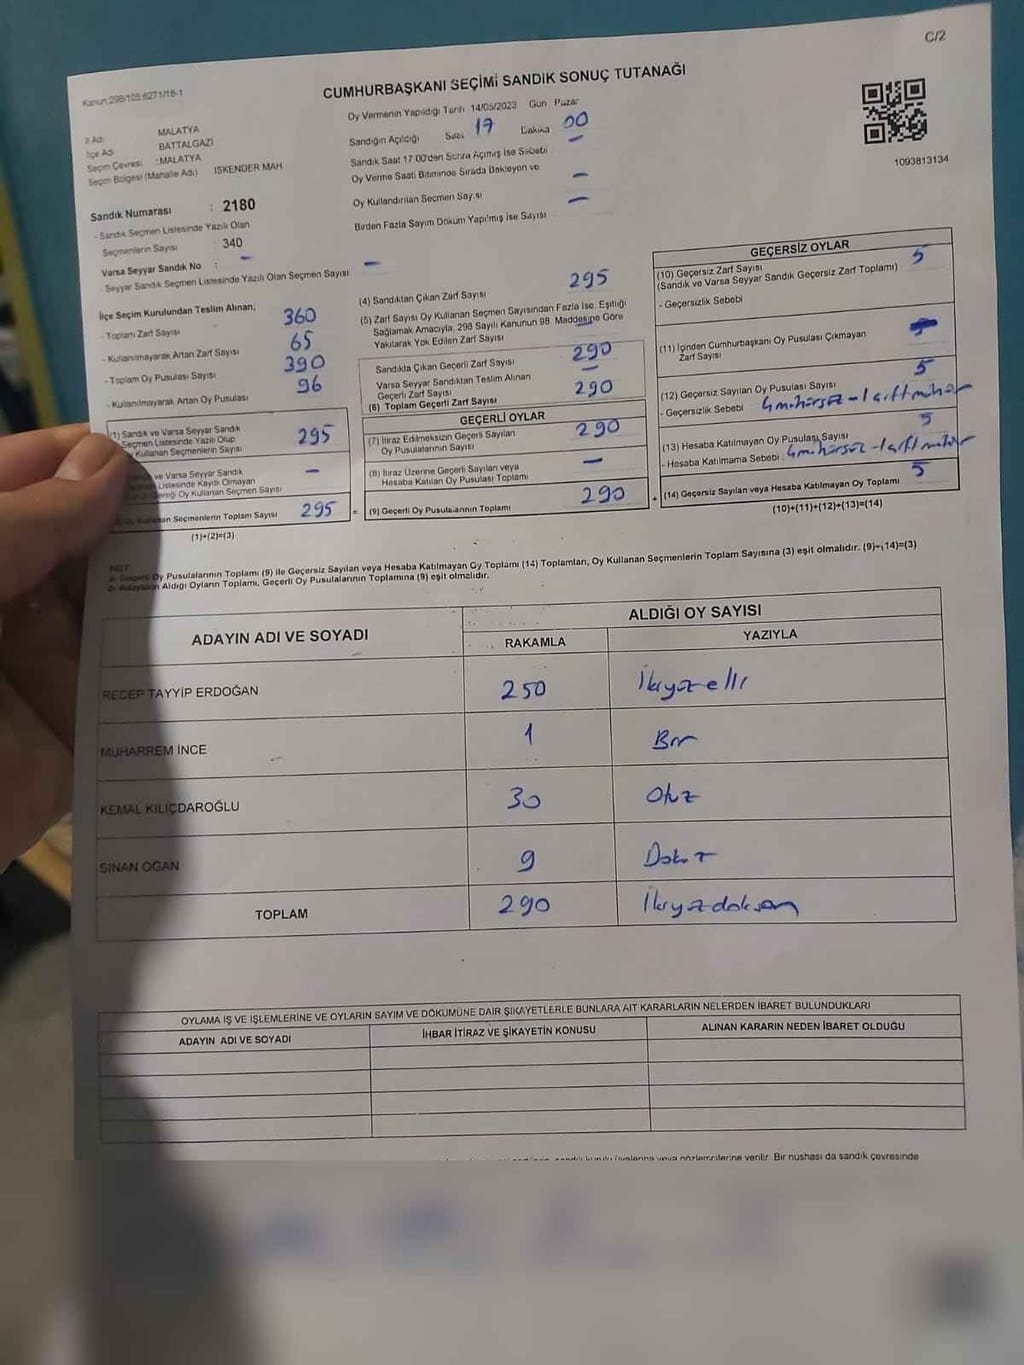 C/2
Kanun 298/105.6271/18-1
CUMHURBAŞKANI SEÇİMİ SANDIK SONUÇ TUTANAĞI
İl Adı MALATYA
İlçe Adı BATTALGAZİ
Seçim Çevresi : MALATYA
Seçim Bölgesi (Mahalle Adı) İSKENDER MAH
Sandık Numarası : 2180
- Sandık Seçmen Listesinde Yazılı Olan
Seçmenlerin Sayısı 340
Varsa Seyyar Sandık No : -
- Seyyar Sandık Seçmen Listesinde Yazılı Olan Seçmen Sayısı -
Oy Vermenin Yapıldığı Tarih 14/05/2023 Gün Pazar
Sandığın Açıldığı Saat 17 Dakika 00
Sandık Saat 17.00'den Sonra Açılmış İse Sebebi -
Oy Verme Saati Bitiminde Sırada Bekleyen ve
Oy Kullandırılan Seçmen Sayısı -
Birden Fazla Sayım Döküm Yapılmış İse Sayısı -
1093813134
İlçe Seçim Kurulundan Teslim Alınan;
- Toplam Zarf Sayısı 360
- Kullanılmayarak Artan Zarf Sayısı 65
- Toplam Oy Pusulası Sayısı 390
- Kullanılmayarak Artan Oy Pusulası 96
(1) Sandık ve Varsa Seyyar Sandık
Seçmen Listesinde Yazılı Olup
Oy Kullanan Seçmenlerin Sayısı 295
ve Varsa Seyyar Sandık
Listesinde Kayıtlı Olmayan
Gereği Oy Kullanan Seçmen Sayısı -
Kullanan Seçmenlerin Toplam Sayısı 295
(1)+(2)=(3)
(4) Sandıktan Çıkan Zarf Sayısı 295
(5) Zarf Sayısı Oy Kullanan Seçmen Sayısından Fazla İse, Eşitliği
Sağlamak Amacıyla, 298 Sayılı Kanunun 98. Maddesine Göre
Yakılarak Yok Edilen Zarf Sayısı -
Sandıkta Çıkan Geçerli Zarf Sayısı 290
Varsa Seyyar Sandıktan Teslim Alınan
Geçerli Zarf Sayısı -
(6) Toplam Geçerli Zarf Sayısı 290
GEÇERLİ OYLAR
(7) İtiraz Edilmeksizin Geçerli Sayılan
Oy Pusulalarının Sayısı 290
(8) İtiraz Üzerine Geçerli Sayılan veya
Hesaba Katılan Oy Pusulası Toplamı -
= (9) Geçerli Oy Pusulalarının Toplamı 290 +
GEÇERSİZ OYLAR
(10) Geçersiz Zarf Sayısı 5
(Sandık ve Varsa Seyyar Sandık Geçersiz Zarf Toplamı)
- Geçersizlik Sebebi
(11) İçinden Cumhurbaşkanı Oy Pusulası Çıkmayan
Zarf Sayısı
(12) Geçersiz Sayılan Oy Pusulası Sayısı 5
- Geçersizlik Sebebi 4 mühürsüz - 1 çift mühür
(13) Hesaba Katılmayan Oy Pusulası Sayısı 5
- Hesaba Katılmama Sebebi 4 mühürsüz - 1 çift mühür
(14) Geçersiz Sayılan veya Hesaba Katılmayan Oy Toplamı 5
(10)+(11)+(12)+(13)=(14)
NOT
a- Geçerli Oy Pusulalarının Toplamı (9) ile Geçersiz Sayılan veya Hesaba Katılmayan Oy Toplamı (14) Toplamları, Oy Kullanan Seçmenlerin Toplam Sayısına (3) eşit olmalıdır. (9)+(14)=(3)
b- Adayların Aldığı Oyların Toplamı, Geçerli Oy Pusulalarının Toplamına (9) eşit olmalıdır.
ADAYIN ADI VE SOYADI
ALDIĞI OY SAYISI
RAKAMLA YAZIYLA
RECEP TAYYİP ERDOĞAN 250 İkiyüzelli
MUHARREM İNCE 1 Bir
KEMAL KILIÇDAROĞLU 30 Otuz
SİNAN OĞAN 9 Dokuz
TOPLAM 290 İkiyüzdoksan
OYLAMA İŞ VE İŞLEMLERİNE VE OYLARIN SAYIM VE DÖKÜMÜNE DAİR ŞİKAYETLERLE BUNLARA AİT KARARLARIN NELERDEN İBARET BULUNDUKLARI
ADAYIN ADI VE SOYADI İHBAR İTİRAZ VE ŞİKAYETİN KONUSU ALINAN KARARIN NEDEN İBARET OLDUĞU
sandık kurulu üyelerine veya gözlemcilerine verilir. Bir nüshası da sandık çevresinde